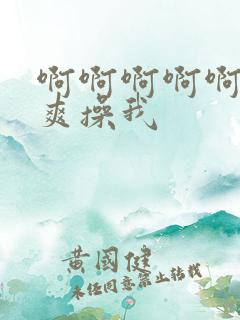 啊啊啊啊啊
爽操我
黄国健
未经同意禁止转载